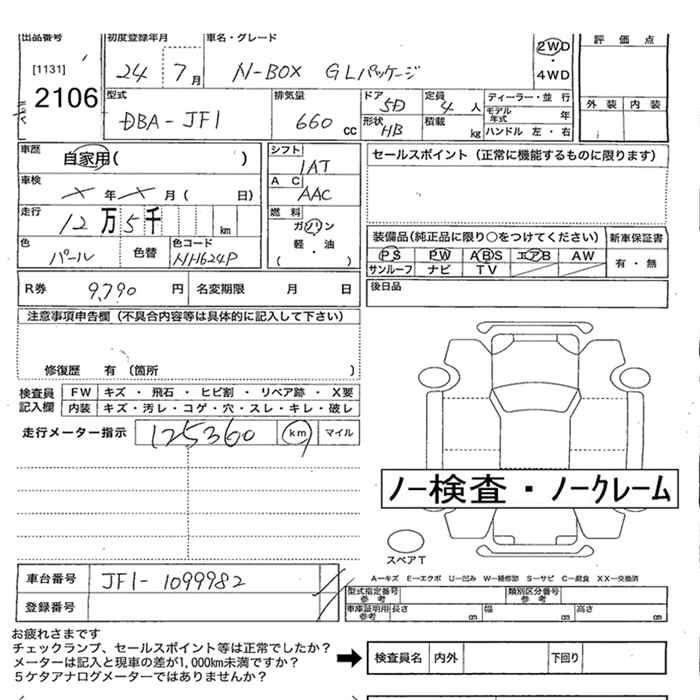 出品番号 初度登録年月 車名・グレード 評価点
[1131] 24 7月 N-BOX GLパッケージ 2WD・4WD
2106
型式 排気量 ドア 定員 ディーラー・並行 外装 内装
DBA-JF1 660cc 5D 4人 モデル年式 年
形状 HB 積載 kg ハンドル 左・右
車歴 自家用( ) シフト セールスポイント(正常に機能するものに限ります)
1AT
車検 年 月( 日) AC AAC
走行 12万5千 km 燃料 ガソリン 装備品(純正品に限り○をつけてください) 新車保証書
軽・油 PS PW ABS エアB AW 有・無
色 パール 色替 色コード NH624P ( ) サンルーフ ナビ TV
R券 9,790円 名変期限 月 日 後日品
注意事項申告欄(不具合内容等は具体的に記入して下さい)
修復歴 有(箇所 )
検査員記入欄 FW キズ・飛石・ヒビ割・リペア跡・X要
内装 キズ・汚レ・コゲ・穴・スレ・キレ・破レ
走行メーター指示 125360 km マイル
ノー検査・ノークレーム
スペアT
A−キズ E−エクボ U−凹み W−補修跡 S−サビ C−腐食 XX−交換済
車台番号 JF1-1099982 型式指定番号 参考 類別区分番号 参考
登録番号 車庫証明用 参考 長さ cm 幅 cm 高さ cm
お疲れさまです
チェックランプ、セールスポイント等は正常でしたか?
メーターは記入と現車の差が1,000km未満ですか?
5ケタアナログメーターではありませんか?
検査員名 内外 下回り